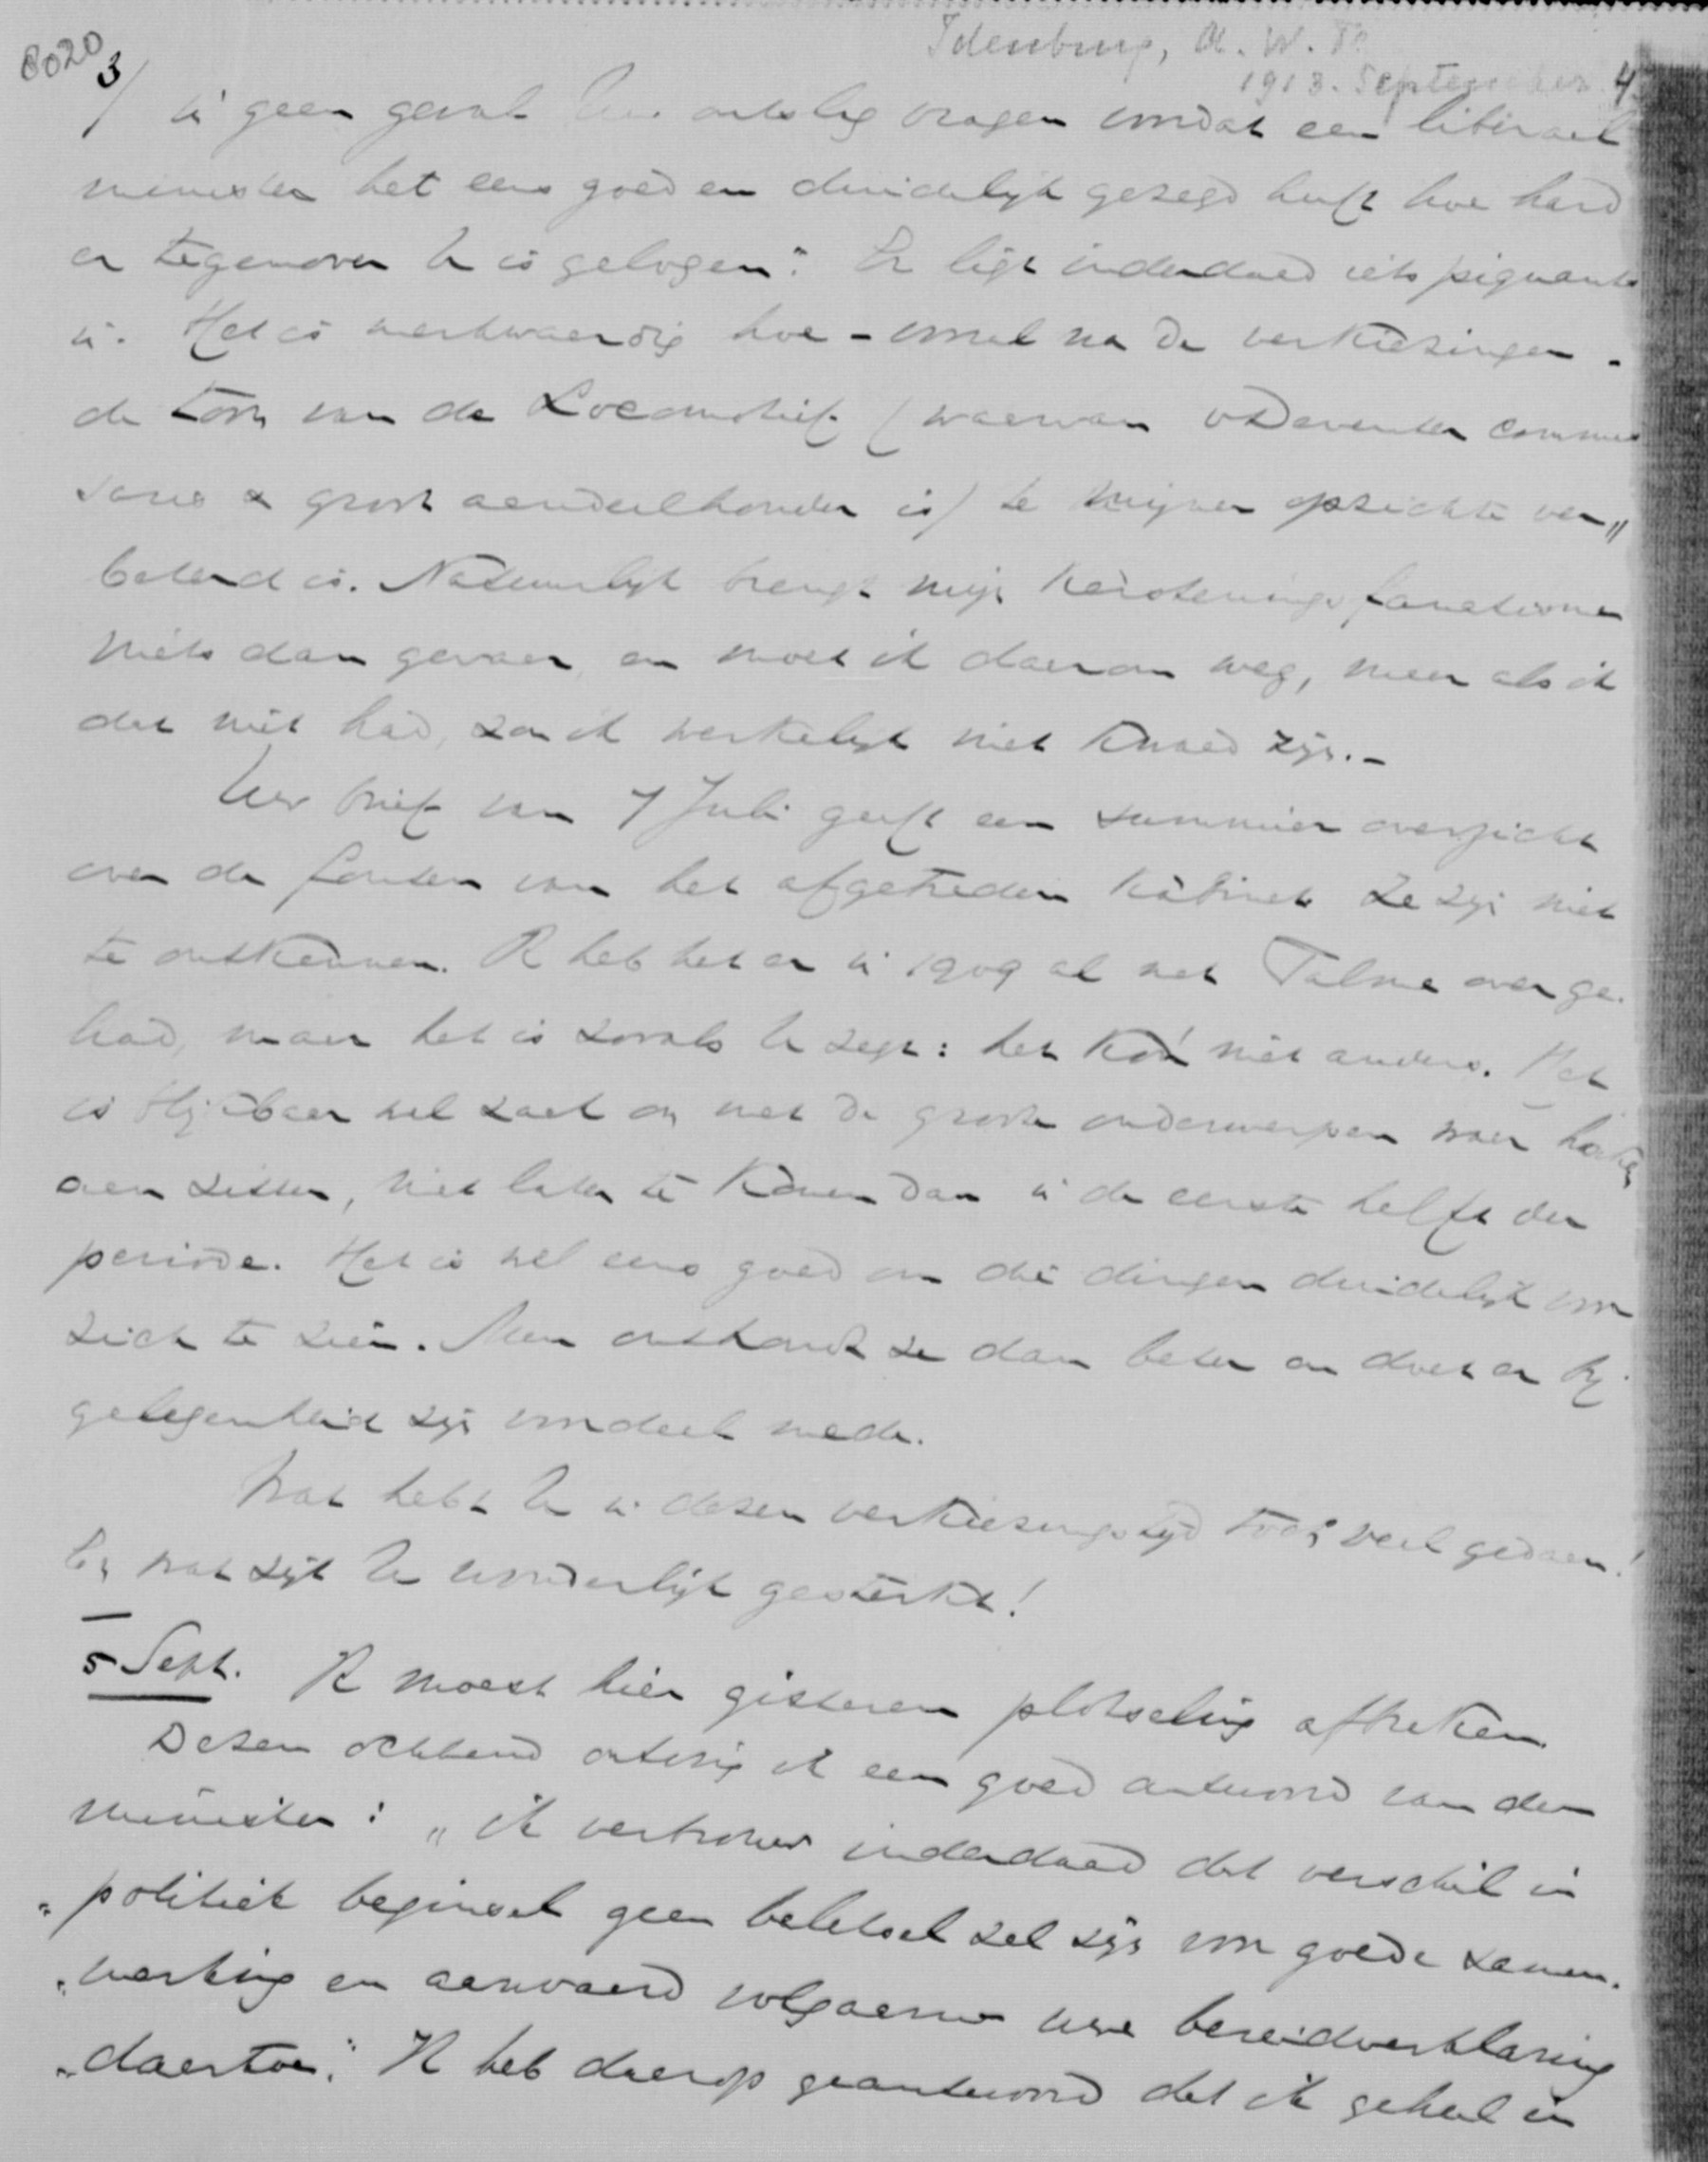 8020
Idenburg, A. W. F.
1913. September 4
3/ in geen geval Uw ontslag vragen omdat een liberaal
minister het eens goed en duidelijk gezegd heeft hoe hard
er tegenover U is gelogen." Er ligt inderdaad iets piquants
in. Het is merkwaardig hoe - vooral na de verkiezingen -
de toon van de Locomotief (waarvan v Deventer commis
saris & groot aandeelhouder is) te mijnen opzichte ver„
beterd is. Natuurlijk brengt mijn kersteningsfanatisme
niets dan gevaar, en moet ik daarom weg, maar als ik
dat niet had, zou ik werkelijk niet kwaad zijn.-
Uw brief van 7 Juli geeft een summier overzicht
over de fouten van het afgetreden Kabinet. Ze zijn niet
te ontkennen. Ik heb het er in 1909 al met Talma over ge-
had, maar het is zooals U zegt: het kon niet anders. Het
is blijkbaar wel zaak om met de groote onderwerpen waar haken
aan zitten, niet later te komen dan in de eerste helft der
periode. Het is wel eens goed om die dingen duidelijk voor
zich te zien. Men onthoudt ze dan beter en doet er bij
gelegenheid zijn voordeel mede.
Wat hebt U in dezen verkiezingstijd toch veel gedaan!
En wat zijt U wonderlijk gesterkt!
5 Sept. Ik moest hier gisteren plotseling afbreken.
Dezen ochtend ontving ik een goed antwoord van den
minister: „ik vertrouw inderdaad dat verschil in
„politiek beginsel geen beletsel zal zijn voor goede samen-
„werking en aanvaard volgaarne uwe bereidverklaring
„daartoe." Ik heb daarop geantwoord dat ik geheel in